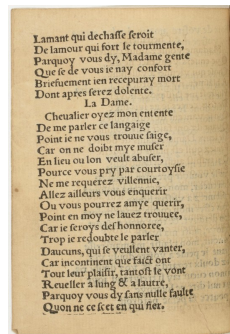 Lamant qui dechasse seroit
De lamour qui fort le tourmente,
Parquoy vous dy, Madame gente
Que se de vous ie nay confort
Briefuement ien recepuray mort
Dont apres serez dolente.
La Dame.
Cheualier oyez mon entente
De me parler ce langaige
Point ie ne vous trouue saige,
Car on ne doibt mye muser
En lieu ou lon veult abuser,
Pource vous pry par courtoysie
Ne me requerez villennie,
Allez ailleurs vous enquerir
Ou vous pourrez amye querir,
Point en moy ne lauez trouuee,
Car ie seroys deshonnoree,
Trop ie redoubte le parler
Daucuns, qui se veullent vanter,
Car incontinent que faict ont
Tout leur plaisir, tantost le vont
Reueller a lung & a lautre,
Parquoy vous dy sans nulle faulte
Quon ne scet en qui fier.